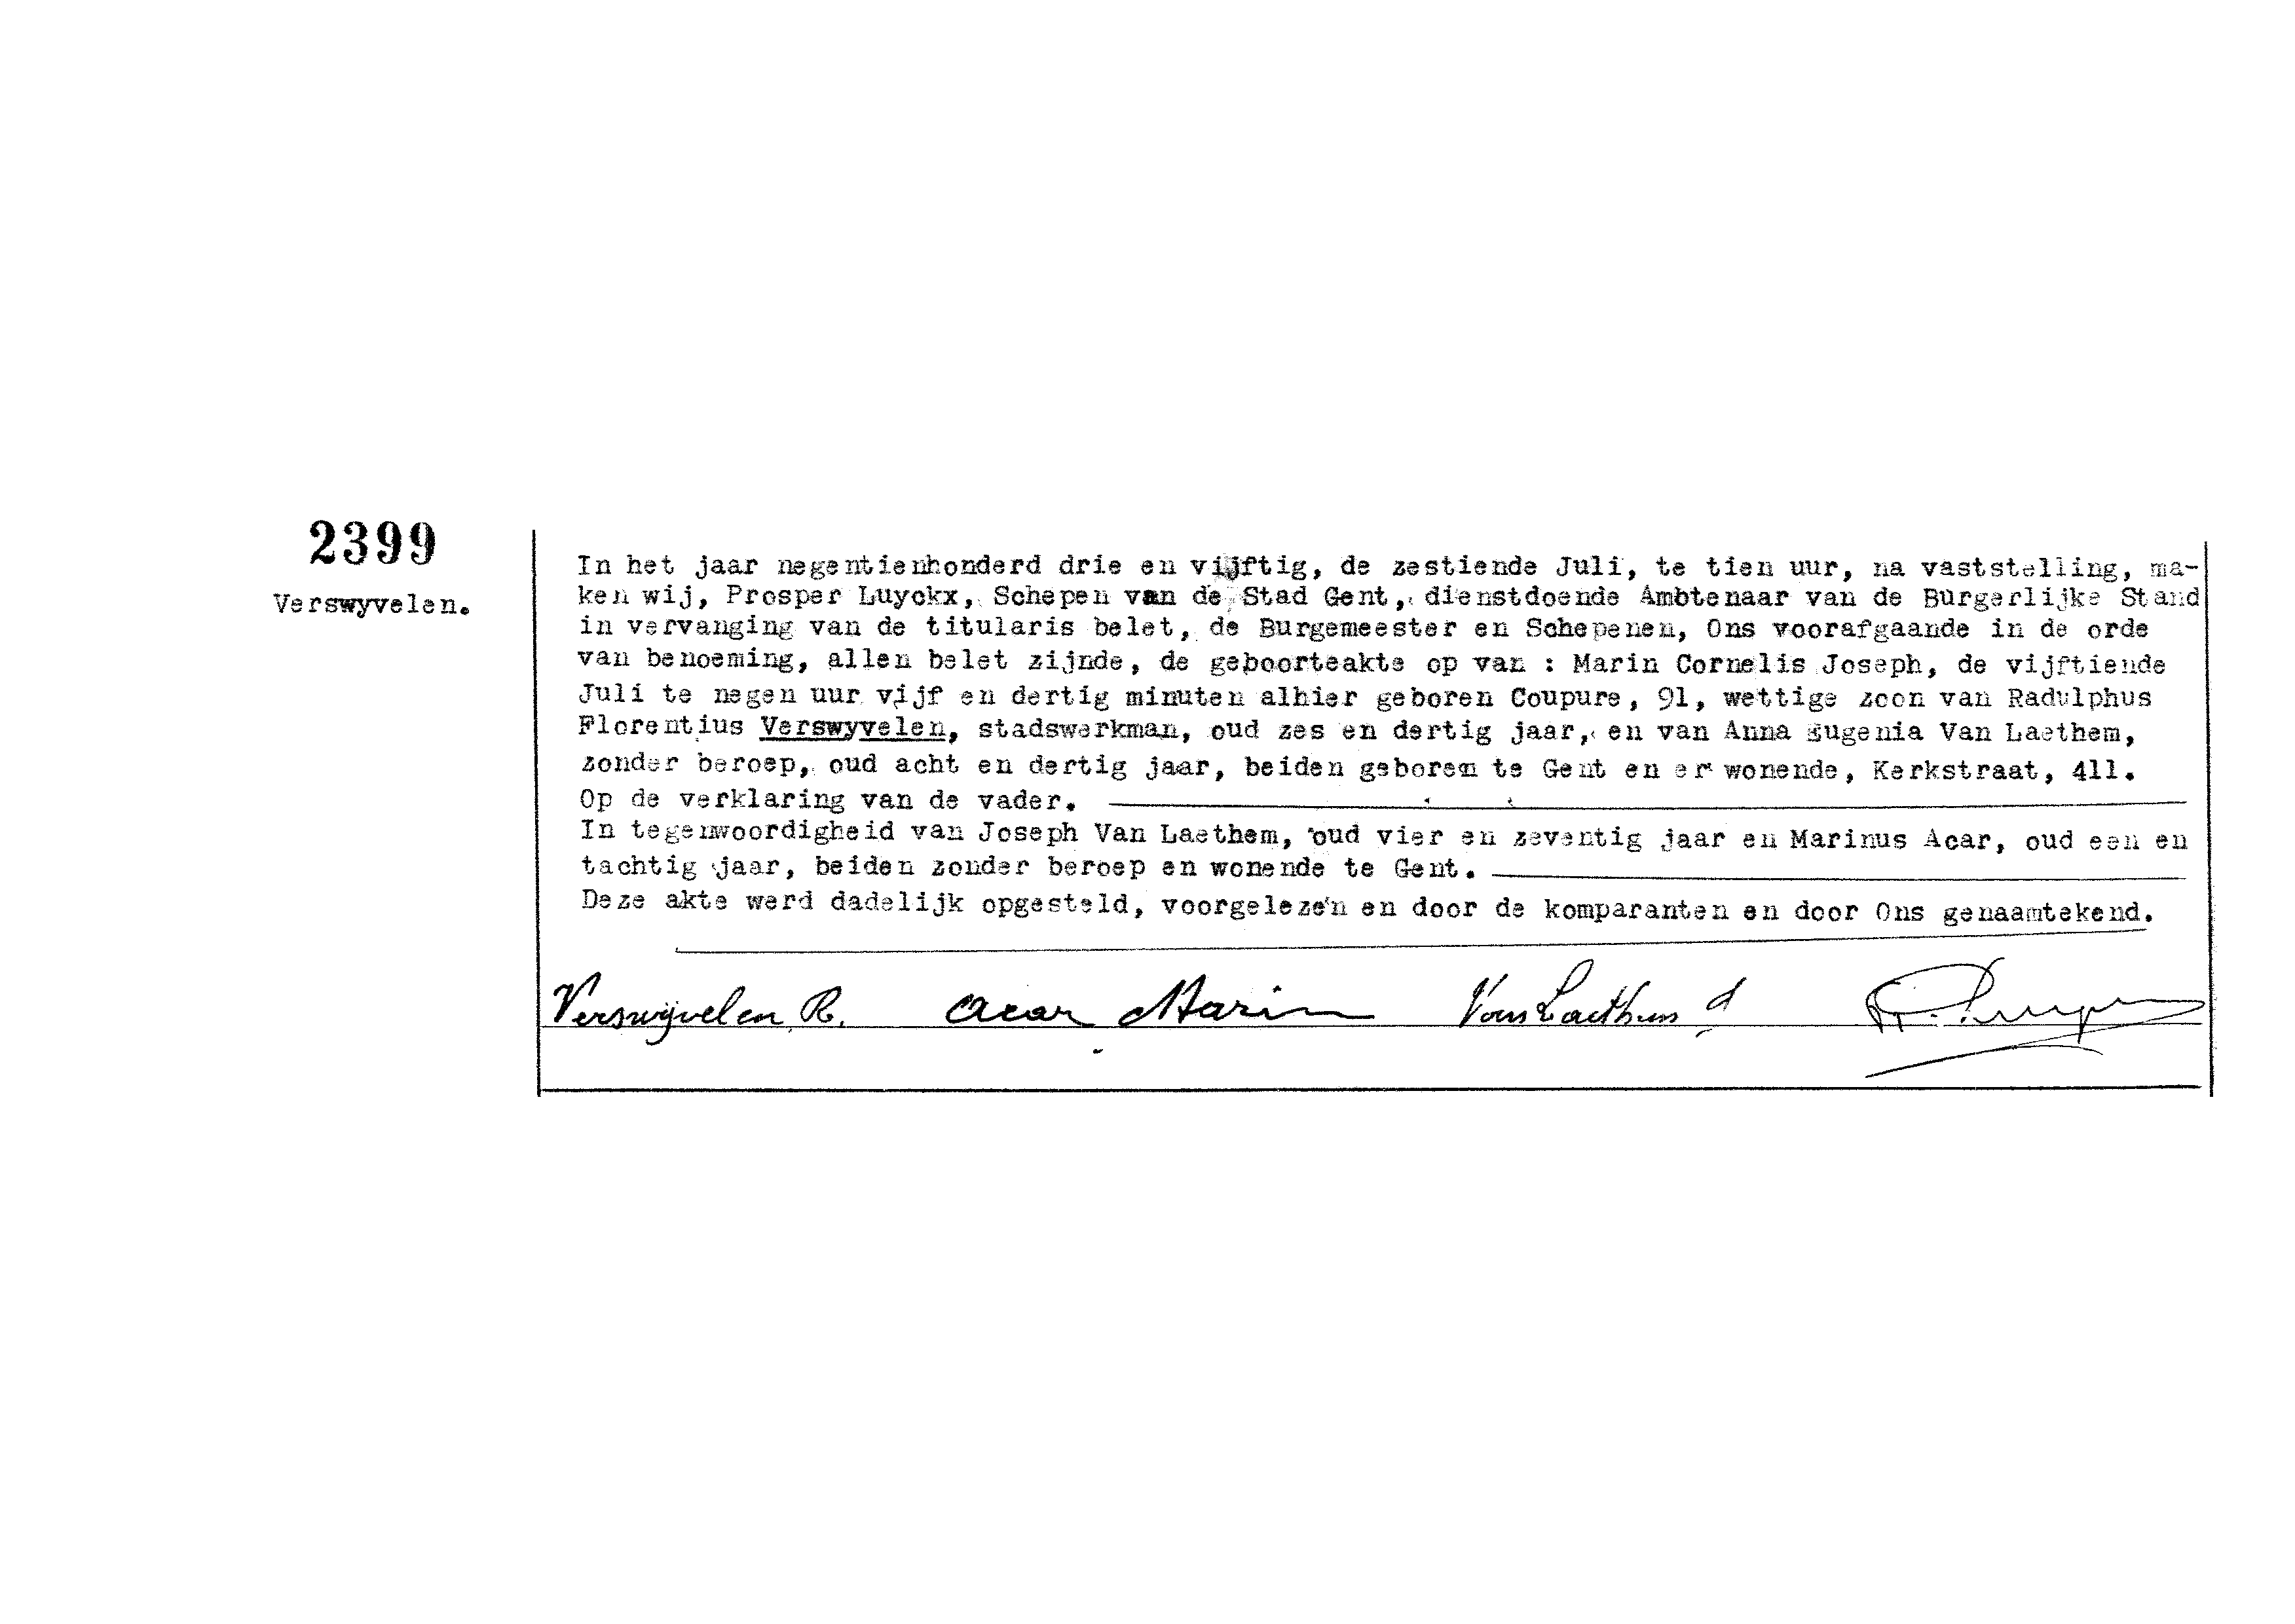 2399
Verswyvelen.
In het jaar negentienhonderd drie en vijftig, de zestiende Juli, te tien uur, na vaststelling, ma-
ken wij, Prosper Luyckx, Schepen van de Stad Gent, dienstdoende Ambtenaar van de Burgerlijke Stand
in vervanging van de titularis belet, de Burgemeester en Schepenen, Ons voorafgaande in de orde
van benoeming, allen belet zijnde, de geboorteakte op van : Marin Cornelis Joseph, de vijftiende
Juli te negen uur vijf en dertig minuten alhier geboren Coupure, 91, wettige zoon van Radulphus
Florentius Verswyvelen, stadswerkman, oud zes en dertig jaar, en van Anna Eugenia Van Laethem,
zonder beroep, oud acht en dertig jaar, beiden geboren te Gent en er wonende, Kerkstraat, 411.
Op de verklaring van de vader.
In tegenwoordigheid van Joseph Van Laethem, oud vier en zeventig jaar en Marinus Acar, oud een en
tachtig jaar, beiden zonder beroep en wonende te Gent.
Deze akte werd dadelijk opgesteld, voorgelezen en door de komparanten en door Ons genaamtekend.
Verswijvelen R. Acar Marin Van Laethem J